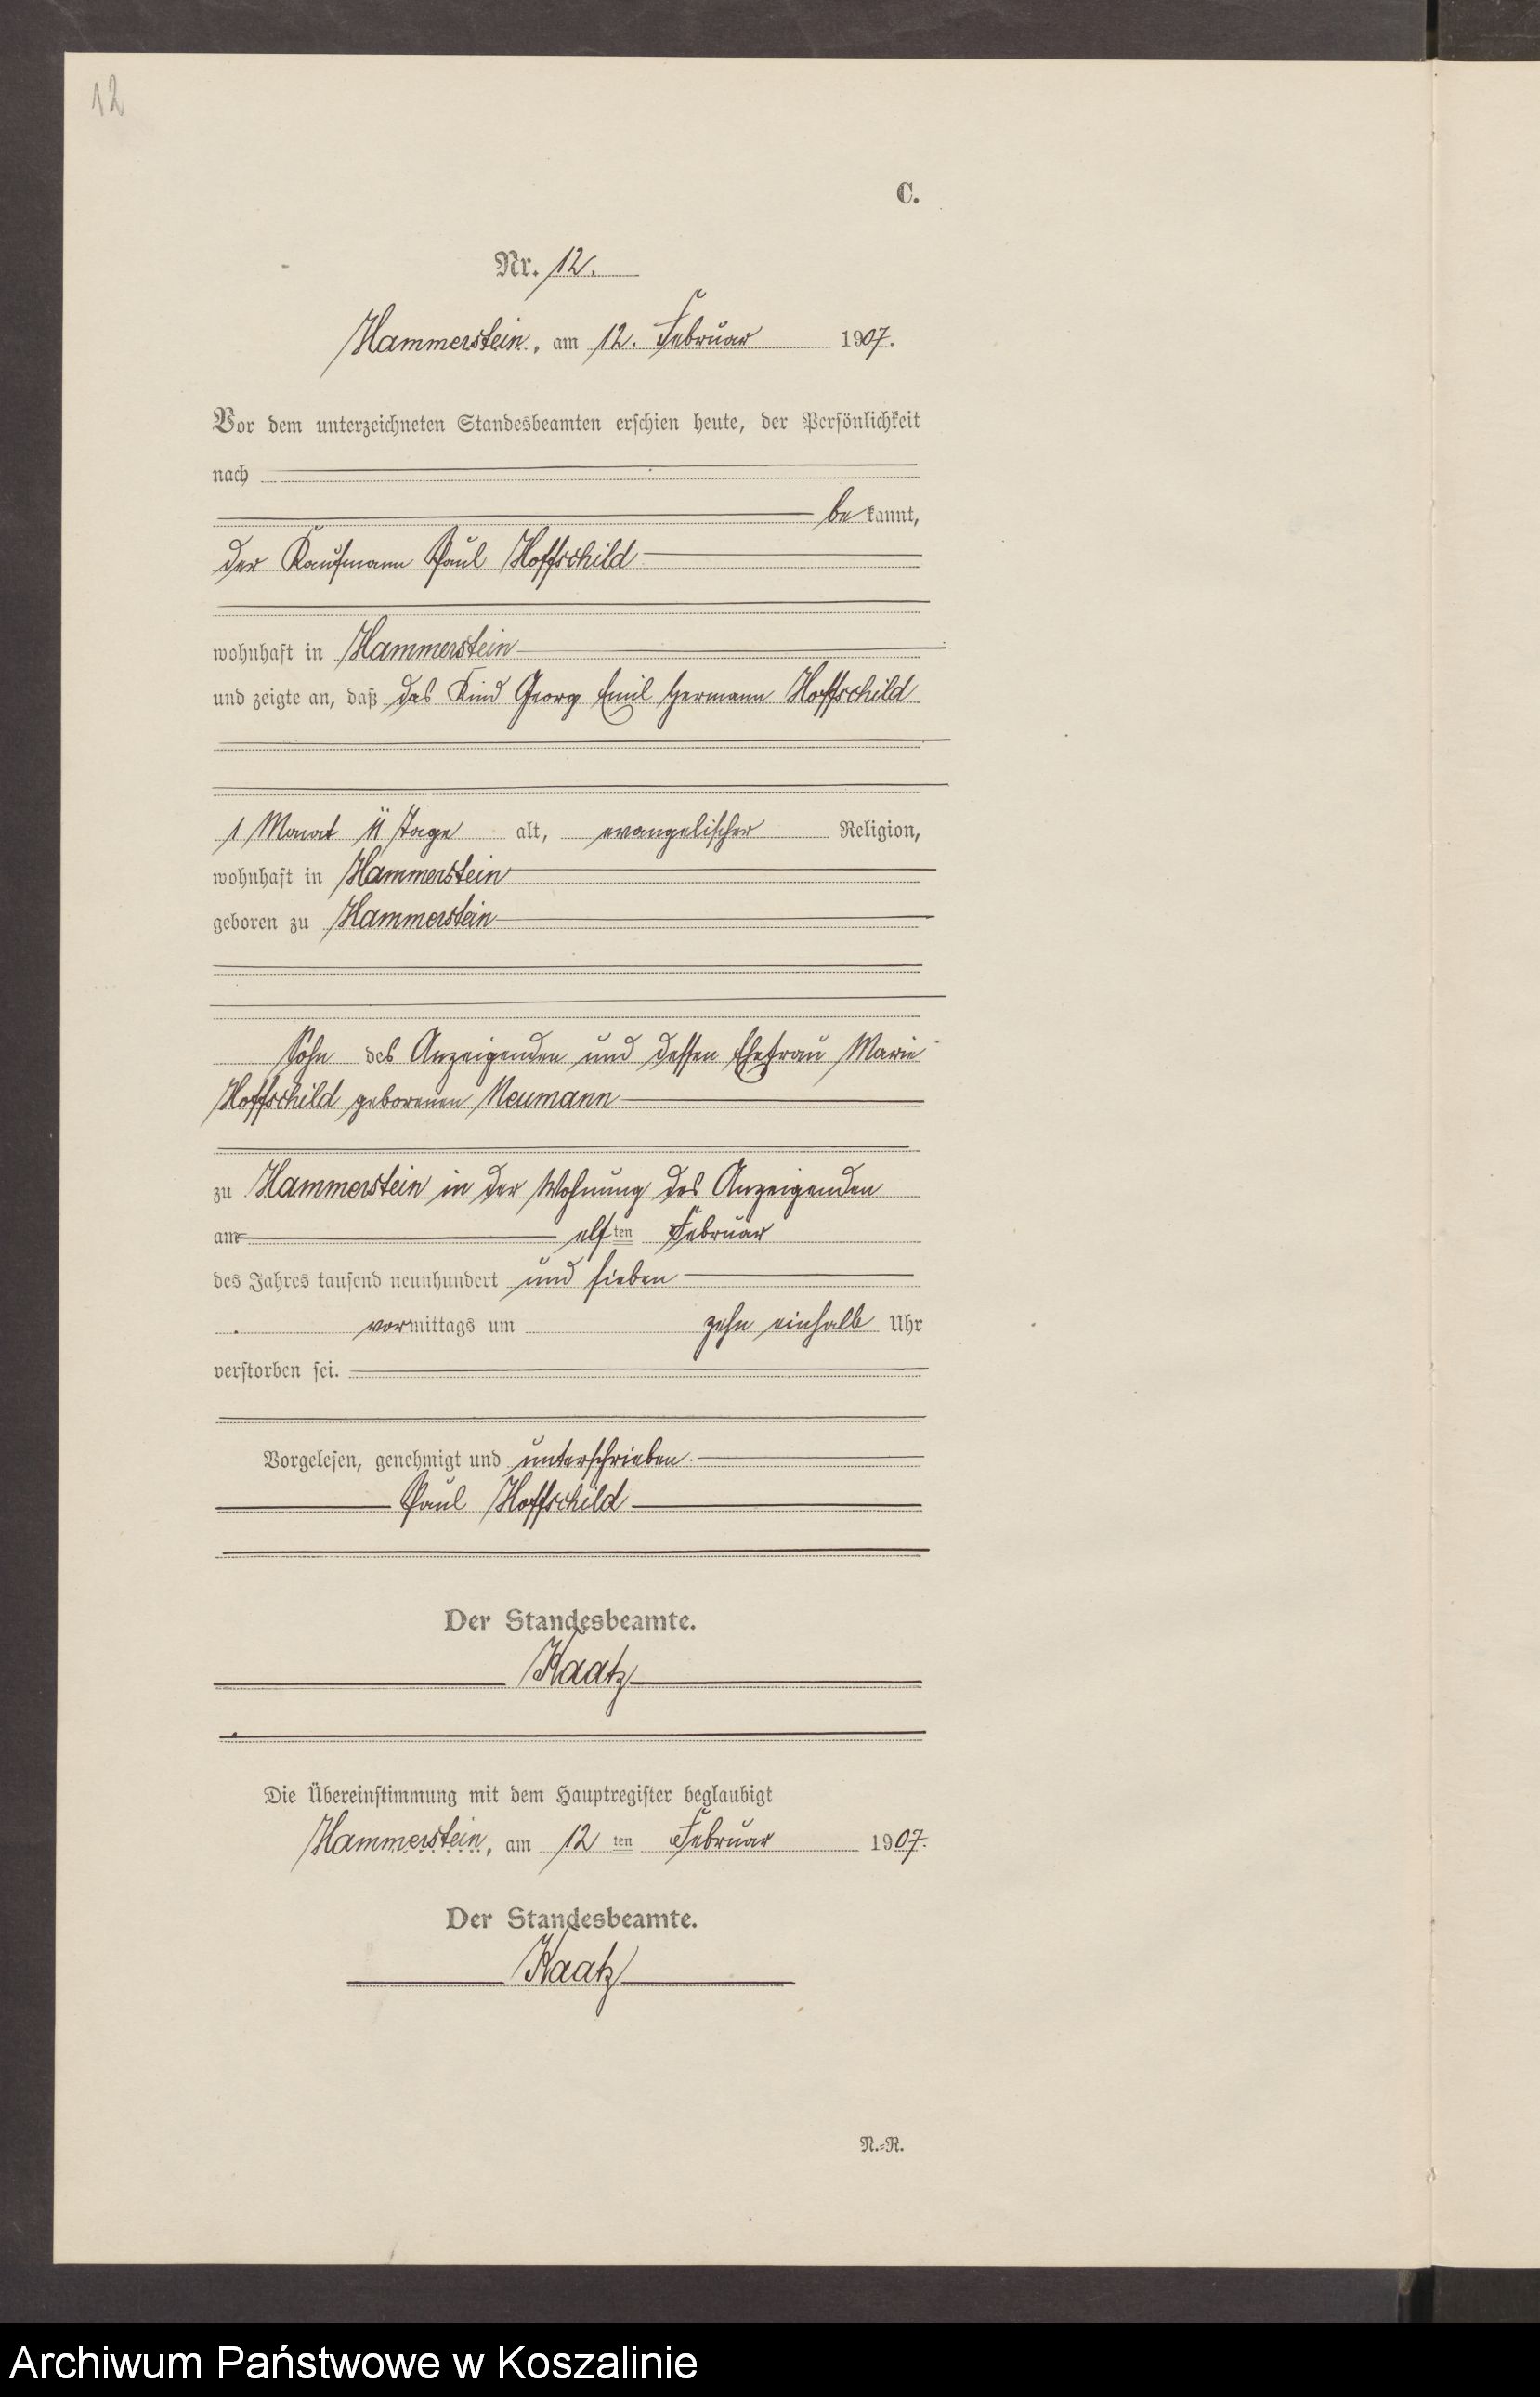 12
C.
Nr. 12.
Hammerstein, am 12. Februar 1907.
Vor dem unterzeichneten Standesbeamten erschien heute, der Persönlichkeit
nach
bekannt,
der Kaufmann Paul Hoffschild
wohnhaft in Hammerstein
und zeigte an, daß das Kind Georg Emil Hermann Hoffschild
1 Monat 11 Tage alt, evangelischer Religion,
wohnhaft in Hammerstein
geboren zu Hammerstein
Sohn des Anzeigenden und dessen Ehefrau Marie
Hoffschild geborenen Neumann
zu Hammerstein in der Wohnung des Anzeigenden
am elften Februar
des Jahres tausend neunhundert und sieben
vormittags um zehn einhalb Uhr
verstorben sei.
Vorgelesen, genehmigt und unterschrieben.
Paul Hoffschild
Der Standesbeamte.
Kaatz
Die Übereinstimmung mit dem Hauptregister beglaubigt
Hammerstein, am 12ten Februar 1907.
Der Standesbeamte.
Kaatz
N.-R.
Archiwum Państwowe w Koszalinie